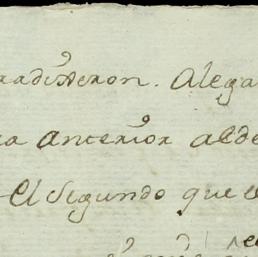 radixeron. Alega
ra anterior al de
El Segundo que e